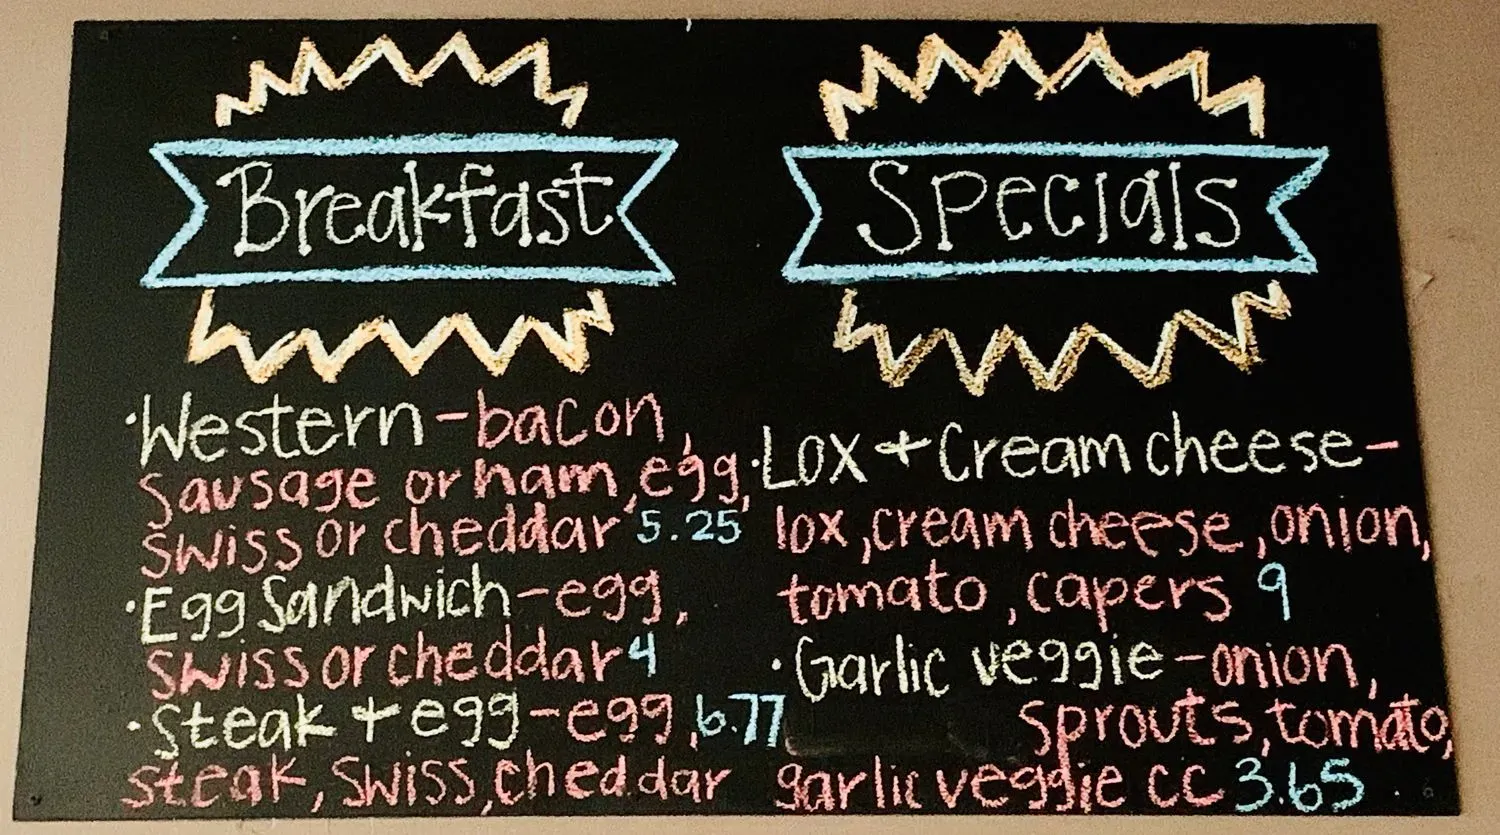 Breakfast
·Western-bacon,
sausage or ham, egg,
swiss or cheddar 5.25
·Egg Sandwich-egg,
swiss or cheddar 4
·Steak + egg-egg, 6.77
steak, swiss, cheddar
Specials
·Lox + Cream cheese-
lox, cream cheese, onion,
tomato, capers 9
·Garlic veggie-onion,
sprouts, tomato,
garlic veggie cc 3.65